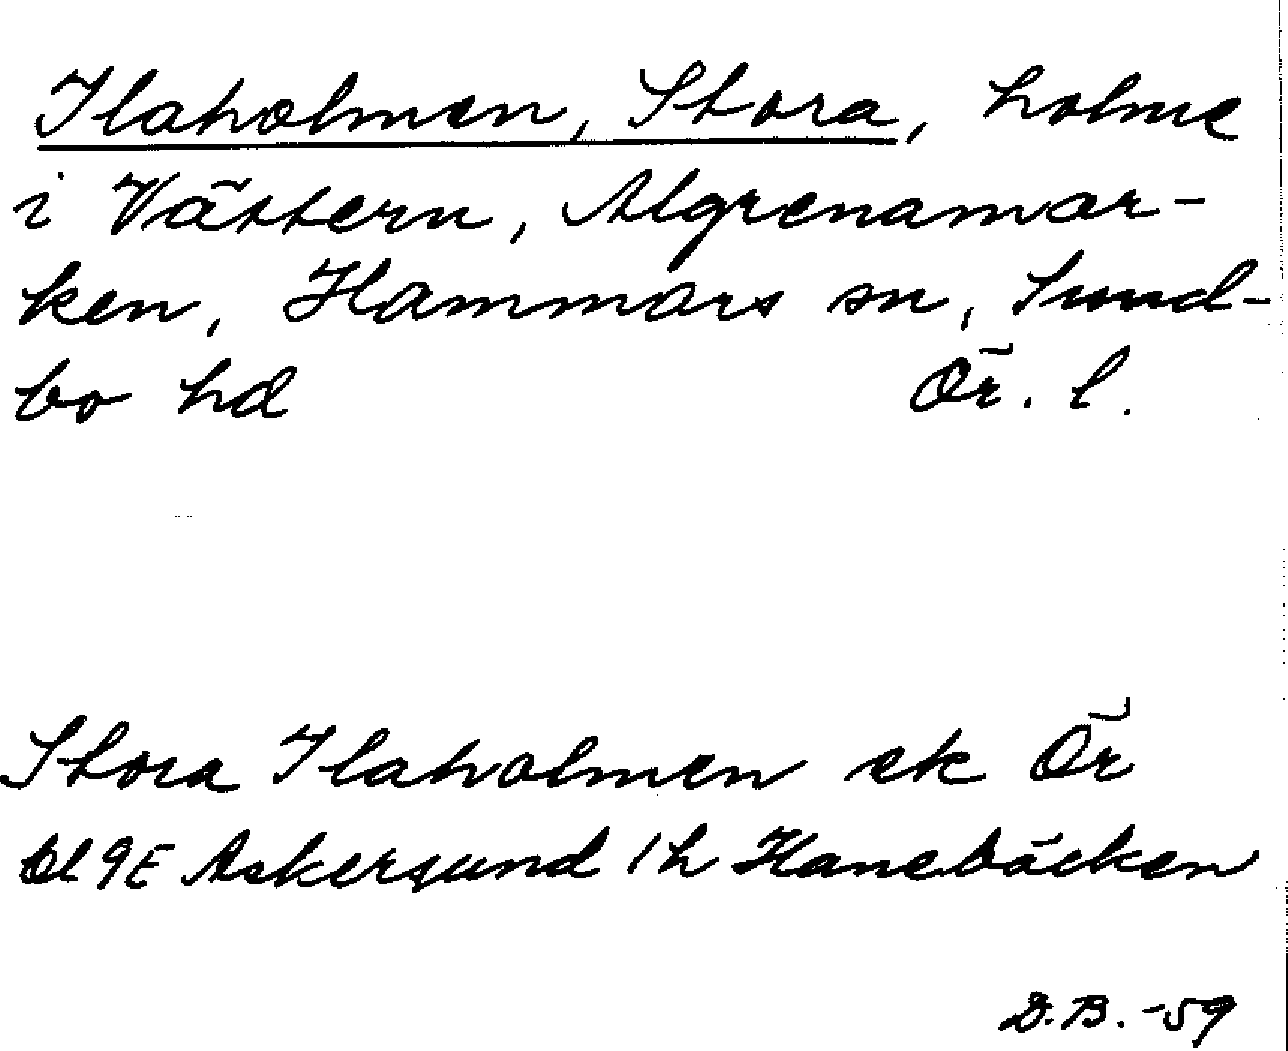 Ilaholmen, Stora, holme
i Vättern, Algrenamar-
ken, Hammars sn, Sund-
bo hd Ör. l.
Stora Ilaholmen ek Ör
bl 9E Askersund 1h Hanebäcken
D.B. -59